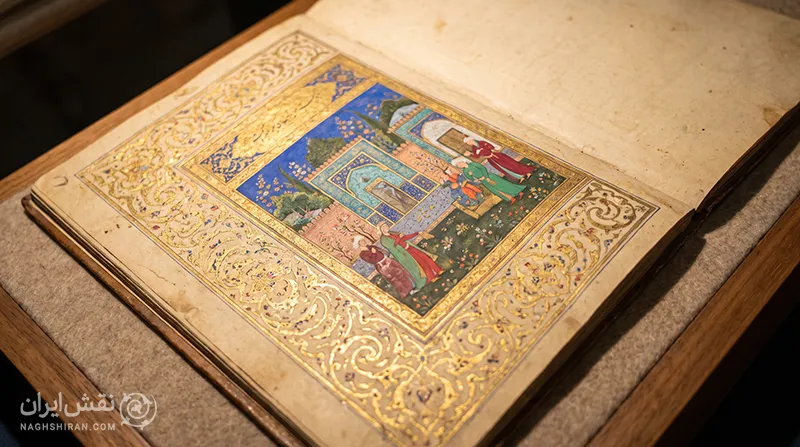 نقش ایران
NAGHSHIRAN.COM